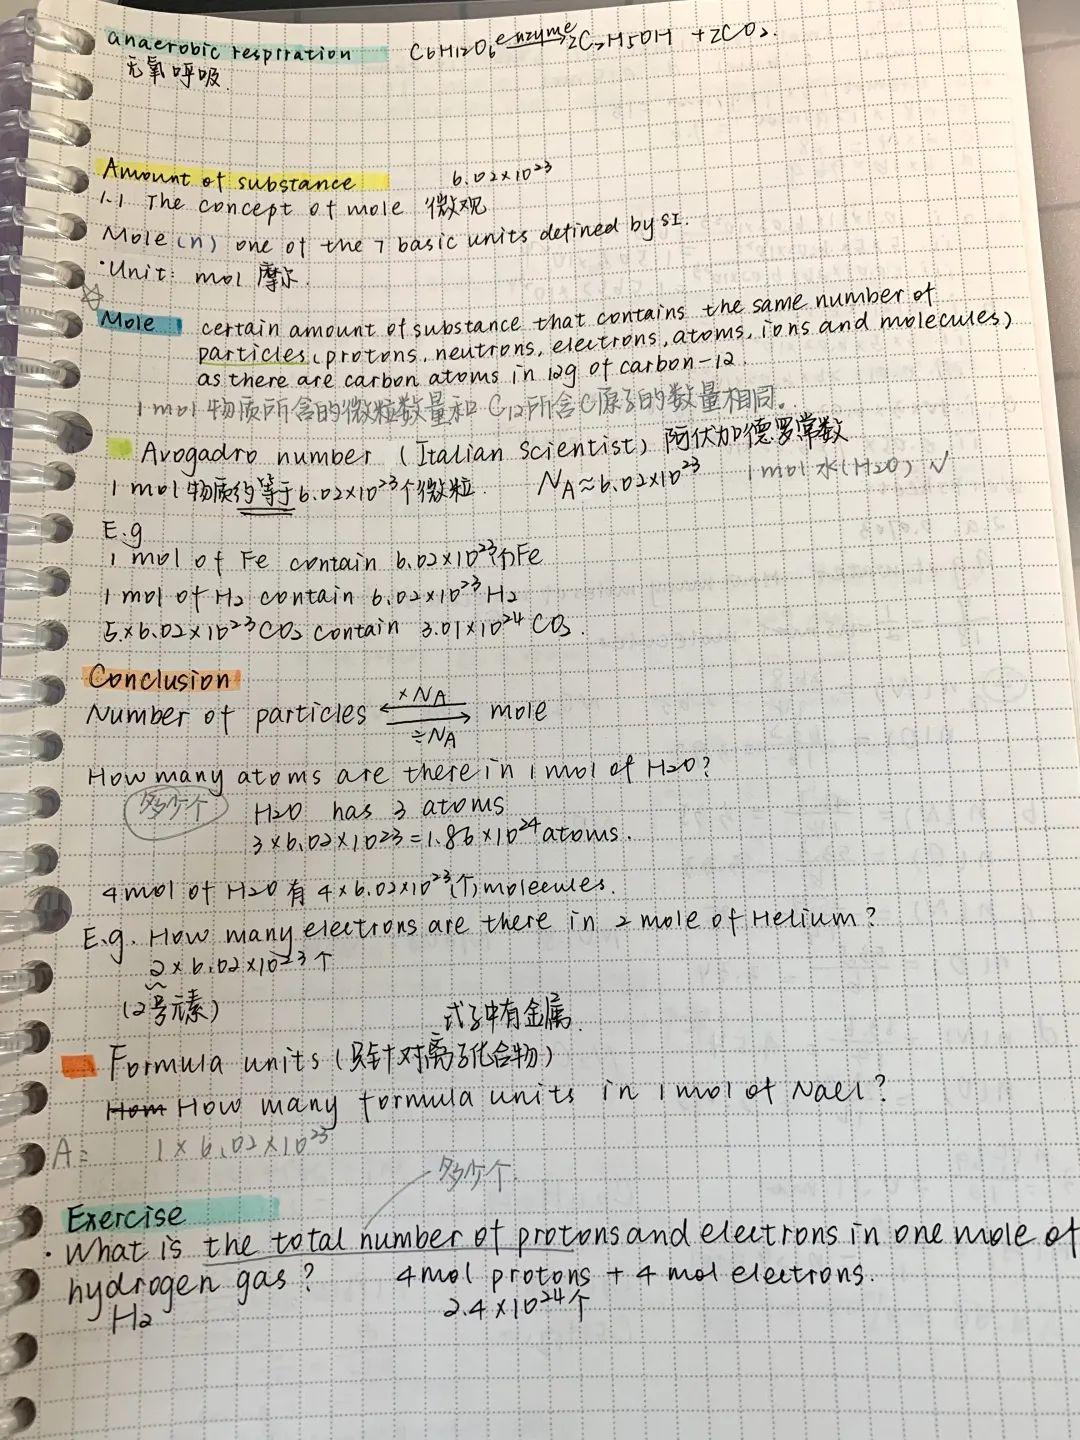 anaerobic respiration C6H12O6 enzyme 2C2H5OH + 2CO2.
无氧呼吸.
Amount of substance 6.02×10²³
1.1 The concept of mole 微观
Mole (n) one of the 7 basic units defined by SI.
·Unit: mol 摩尔.
Mole certain amount of substance that contains the same number of
particles (protons, neutrons, electrons, atoms, ions and molecules)
as there are carbon atoms in 12g of carbon-12.
1 mol 物质所含的微粒数量和 C12所含C原子的数量相同。
Avogadro number (Italian Scientist) 阿伏加德罗常数
1 mol 物质约等于 6.02×10²³个微粒. NA≈6.02×10²³ 1 mol 水(H2O) √
E.g
1 mol of Fe contain 6.02×10²³个Fe
1 mol of H2 contain 6.02×10²³ H2
5×6.02×10²³ CO2 contain 3.01×10²⁴ CO2.
Conclusion
×NA
Number of particles ⇄ mole
÷NA
How many atoms are there in 1 mol of H2O?
多少个 H2O has 3 atoms
3×6.02×10²³=1.86×10²⁴ atoms.
4 mol of H2O 有 4×6.02×10²³个 molecules.
E.g. How many electrons are there in 2 mole of Helium?
2×6.02×10²³个
(2号元素)
式子中有金属.
Formula units (只针对离子化合物)
How many formula units in 1 mol of NaCl?
A= 1×6.02×10²³
多少个
Exercise
· What is the total number of protons and electrons in one mole of
hydrogen gas? 4 mol protons + 4 mol electrons.
H2 2.4×10²⁴个